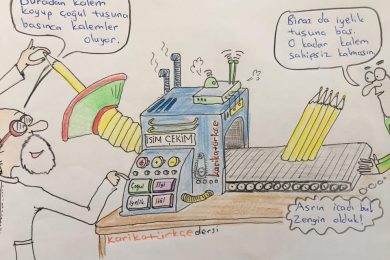 Buradan kalem
koyup çoğul tuşuna
basınca kalemler
oluyor.
Biraz da iyelik
tuşuna bas.
O kadar kalem
sahipsiz kalmasın.
İSİM ÇEKİM
karikatürkçe
Çoğul
İlgi
İyelik
Hâl
Asrın icadı bu!
Zengin olduk!
karikatürkçe dersi